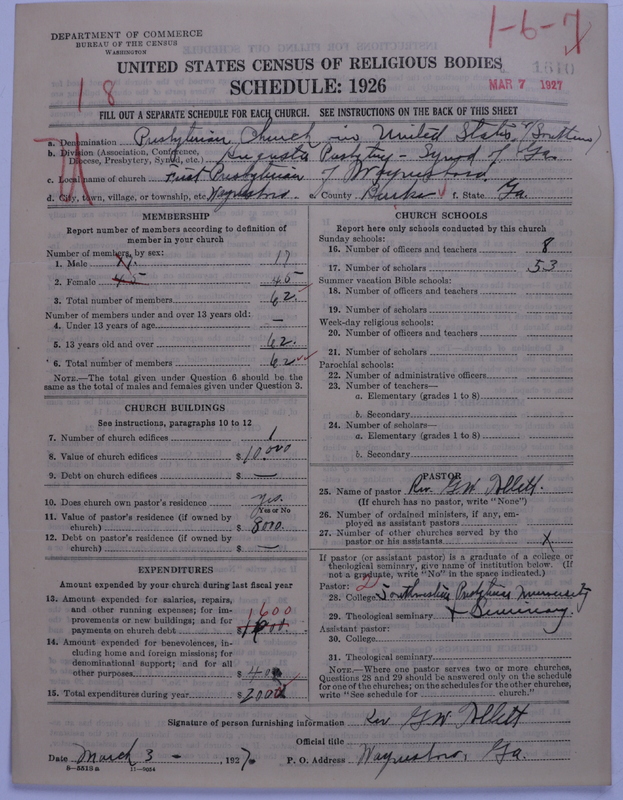 DEPARTMENT OF COMMERCE
BUREAU OF THE CENSUS
WASHINGTON
1-6-7
UNITED STATES CENSUS OF RELIGIOUS BODIES
1610
SCHEDULE: 1926
MAR 7 1927
18
FILL OUT A SEPARATE SCHEDULE FOR EACH CHURCH. SEE INSTRUCTIONS ON THE BACK OF THIS SHEET
a. Denomination Presbyterian Church in United States (Southern)
b. Division (Association, Conference, Diocese, Presbytery, Synod, etc.) Augusta Presbytery - Synod of Ga.
c. Local name of church First Presbyterian of Waynesboro
d. City, town, village, or township, etc. Waynesboro e. County Burke f. State Ga.
MEMBERSHIP
Report number of members according to definition of
member in your church
Number of members, by sex:
1. Male 17
2. Female 45 45
3. Total number of members 62
Number of members under and over 13 years old:
4. Under 13 years of age —
5. 13 years old and over 62
6. Total number of members 62
NOTE.—The total given under Question 6 should be the
same as the total of males and females given under Question 3.
CHURCH BUILDINGS
See instructions, paragraphs 10 to 12
7. Number of church edifices 1
8. Value of church edifices $ 10,000
9. Debt on church edifices $ —
10. Does church own pastor's residence yes.
Yes or No
11. Value of pastor's residence (if owned by
church) $ 8000.
12. Debt on pastor's residence (if owned by
church) $ —
EXPENDITURES
Amount expended by your church during last fiscal year
13. Amount expended for salaries, repairs,
and other running expenses; for im-
provements or new buildings; and for
payments on church debt $ 1600
14. Amount expended for benevolences, in-
cluding home and foreign missions; for
denominational support; and for all
other purposes $ 400
15. Total expenditures during year $ 2000
CHURCH SCHOOLS
Report here only schools conducted by this church
Sunday schools:
16. Number of officers and teachers 8
17. Number of scholars 53
Summer vacation Bible schools:
18. Number of officers and teachers
19. Number of scholars
Week-day religious schools:
20. Number of officers and teachers
21. Number of scholars
Parochial schools:
22. Number of administrative officers
23. Number of teachers—
a. Elementary (grades 1 to 8)
b. Secondary
24. Number of scholars—
a. Elementary (grades 1 to 8)
b. Secondary
PASTOR
25. Name of pastor Rev. G.W. Tollett.
(If church has no pastor, write "None")
26. Number of ordained ministers, if any, em-
ployed as assistant pastors
27. Number of other churches served by the
pastor or his assistants X
If pastor (or assistant pastor) is a graduate of a college or
theological seminary, give name of institution below. (If
not a graduate, write "No" in the space indicated.)
Pastor:
28. College Southwestern Presbyterian University
29. Theological seminary + Seminary.
Assistant pastor:
30. College
31. Theological seminary
NOTE.—Where one pastor serves two or more churches,
Questions 28 and 29 should be answered only on the schedule
for one of the churches; on the schedules for the other churches,
write "See schedule for church."
Signature of person furnishing information Rev G.W. Tollett
Official title
Date March 3 - , 1927. P. O. Address Waynesboro, Ga.
8-5519a 11-9054